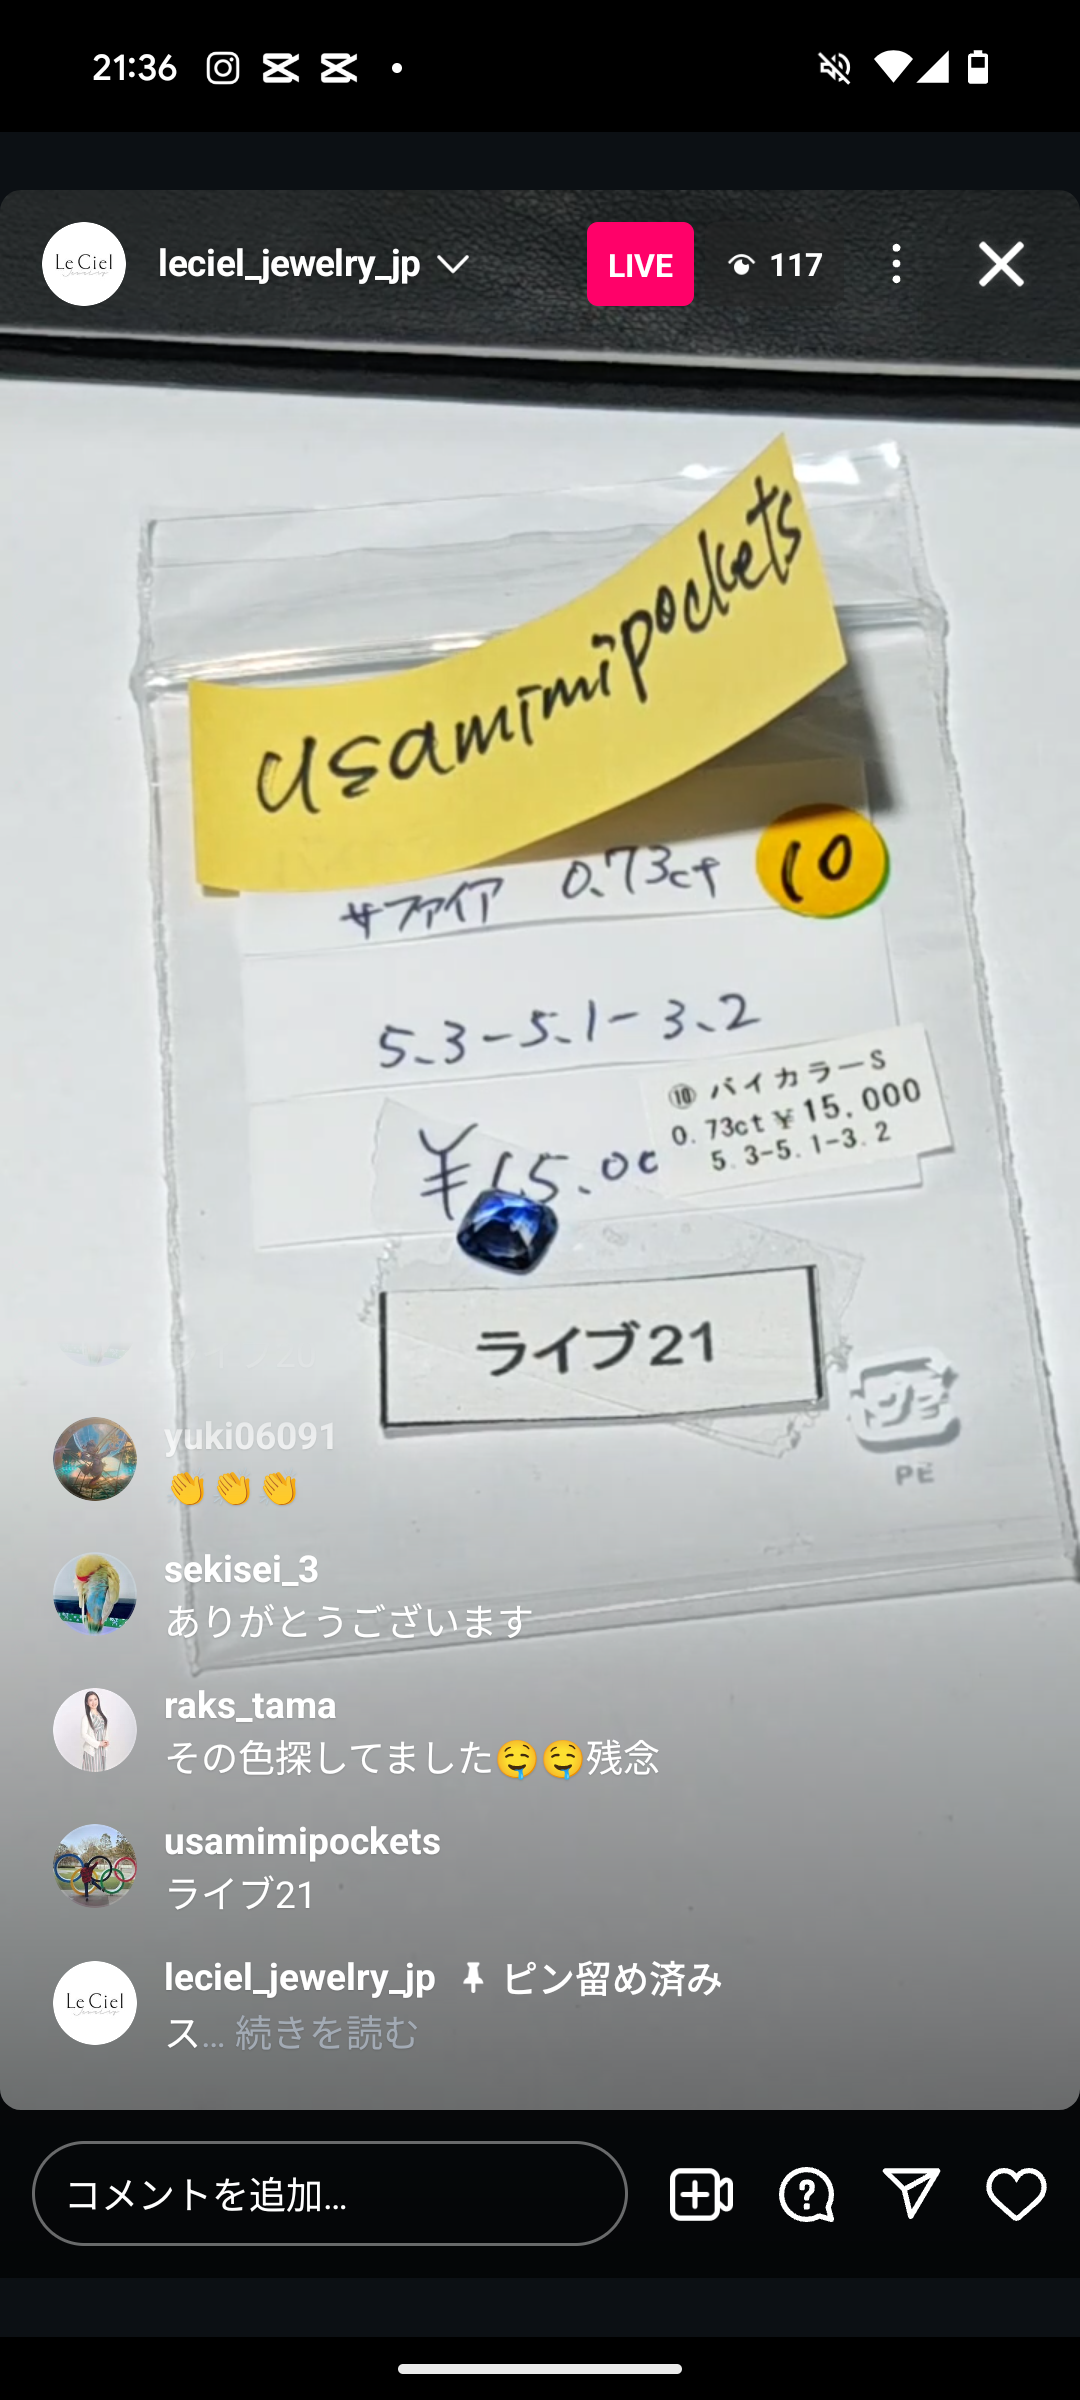 21:36
Le Ciel
leciel_jewelry_jp
LIVE
117
usamimipockets
サファイア 0.73ct
10
5.3-5.1-3.2
⑩ バイカラーS
0.73ct ¥15,000
5.3-5.1-3.2
¥15.00
ライブ21
PE
yuki06091
👏👏👏
sekisei_3
ありがとうございます
raks_tama
その色探してました🤤🤤残念
usamimipockets
ライブ21
Le Ciel
leciel_jewelry_jp ピン留め済み
ス... 続きを読む
コメントを追加...